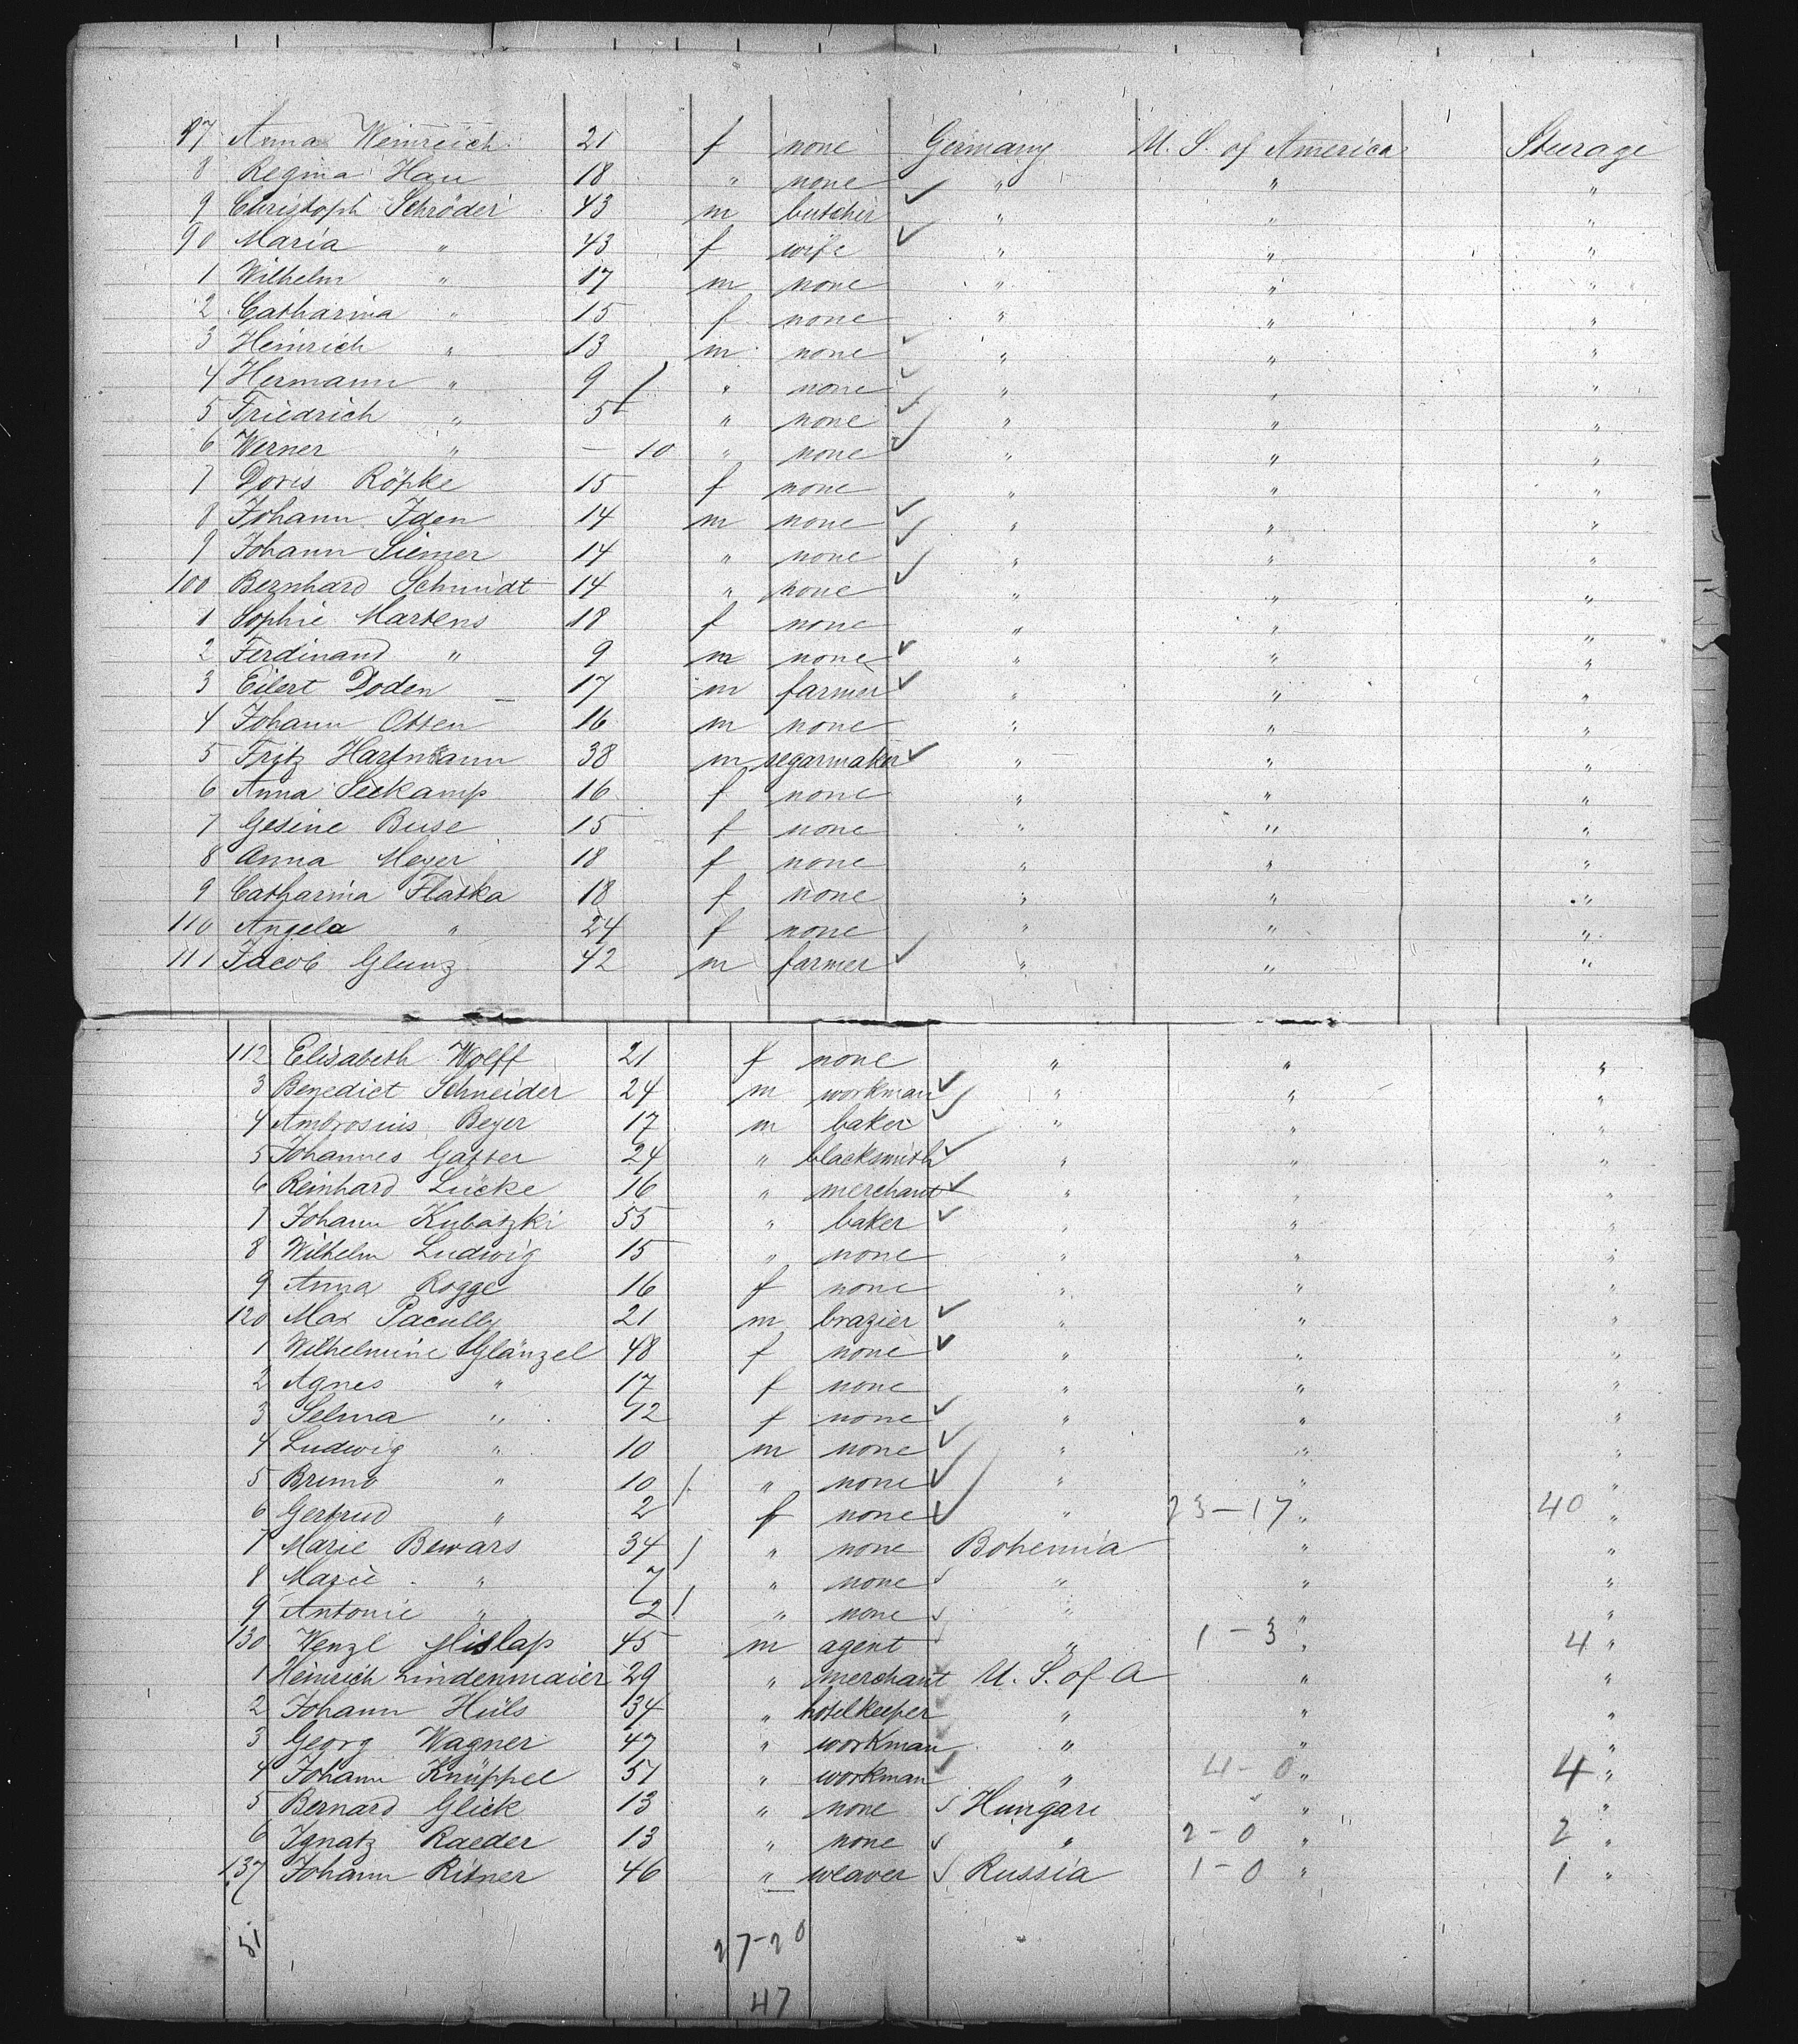 87 Anna Weinreich 21 f none Germany U. S. of America Steerage
8 Regina Hau 18 " none " " "
9 Christoph Schröder 43 m butcher " " "
90 Maria " 43 f wife " " "
1 Wilhelm " 17 m none " " "
2 Catharina " 15 f none " " "
3 Heinrich " 13 m none " " "
4 Hermann " 9 " none " " "
5 Friedrich " 5 " none " " "
6 Werner " – 10 " none " " "
7 Doris Röpke 15 f none " " "
8 Johann Iden 14 m none " " "
9 Johann Siemer 14 " none " " "
100 Bernhard Schmidt 14 " none " " "
1 Sophie Martens 18 f none " " "
2 Ferdinand " 9 m none " " "
3 Eilert Doden 17 m farmer " " "
4 Johann Otten 16 m none " " "
5 Fritz Hartmann 38 m segarmaker " " "
6 Anna Seekamp 16 f none " " "
7 Gesine Buse 15 f none " " "
8 Anna Meyer 18 f none " " "
9 Catharina Flaska 18 f none " " "
110 Angela " 24 f none " " "
111 Jacob Glunz 42 m farmer " " "
112 Elisabeth Wolff 21 f none " " "
3 Benedict Schneider 24 m workman " " "
4 Ambrosius Beyer 17 m baker " " "
5 Johannes Gatter 24 " blacksmith " " "
6 Reinhard Lücke 16 " merchant " " "
7 Johann Kubatzki 55 " baker " " "
8 Wilhelm Ludwig 15 " none " " "
9 Anna Rogge 16 f none " " "
120 Max Pacully 21 m brazier " " "
1 Wilhelmine Glänzel 48 f none " " "
2 Agnes " 17 f none " " "
3 Selma " 12 f none " " "
4 Ludwig " 10 m none " " "
5 Bruno " 10 " none " " "
6 Gertrud " 2 f none " 23–17 " 40 "
7 Marie Bewars 34 " none Bohemia " "
8 Marie " 7 " none " " "
9 Antonie " 2 " none " " "
130 Wenzl Mislap 45 m agent " 1–3 " 4 "
1 Heinrich Lindenmaier 29 " merchant U. S. of A " "
2 Johann Hüls 34 " hotelkeeper " " "
3 Georg Wagner 47 " workman " " "
4 Johann Knüppel 51 " workman " 4–0 " 4 "
5 Bernard Glick 13 " none Hungari " "
6 Ignatz Raeder 13 " none " 2–0 " 2 "
137 Johann Ritner 46 " weaver Russia 1–0 " 1 "
51 27–20
47